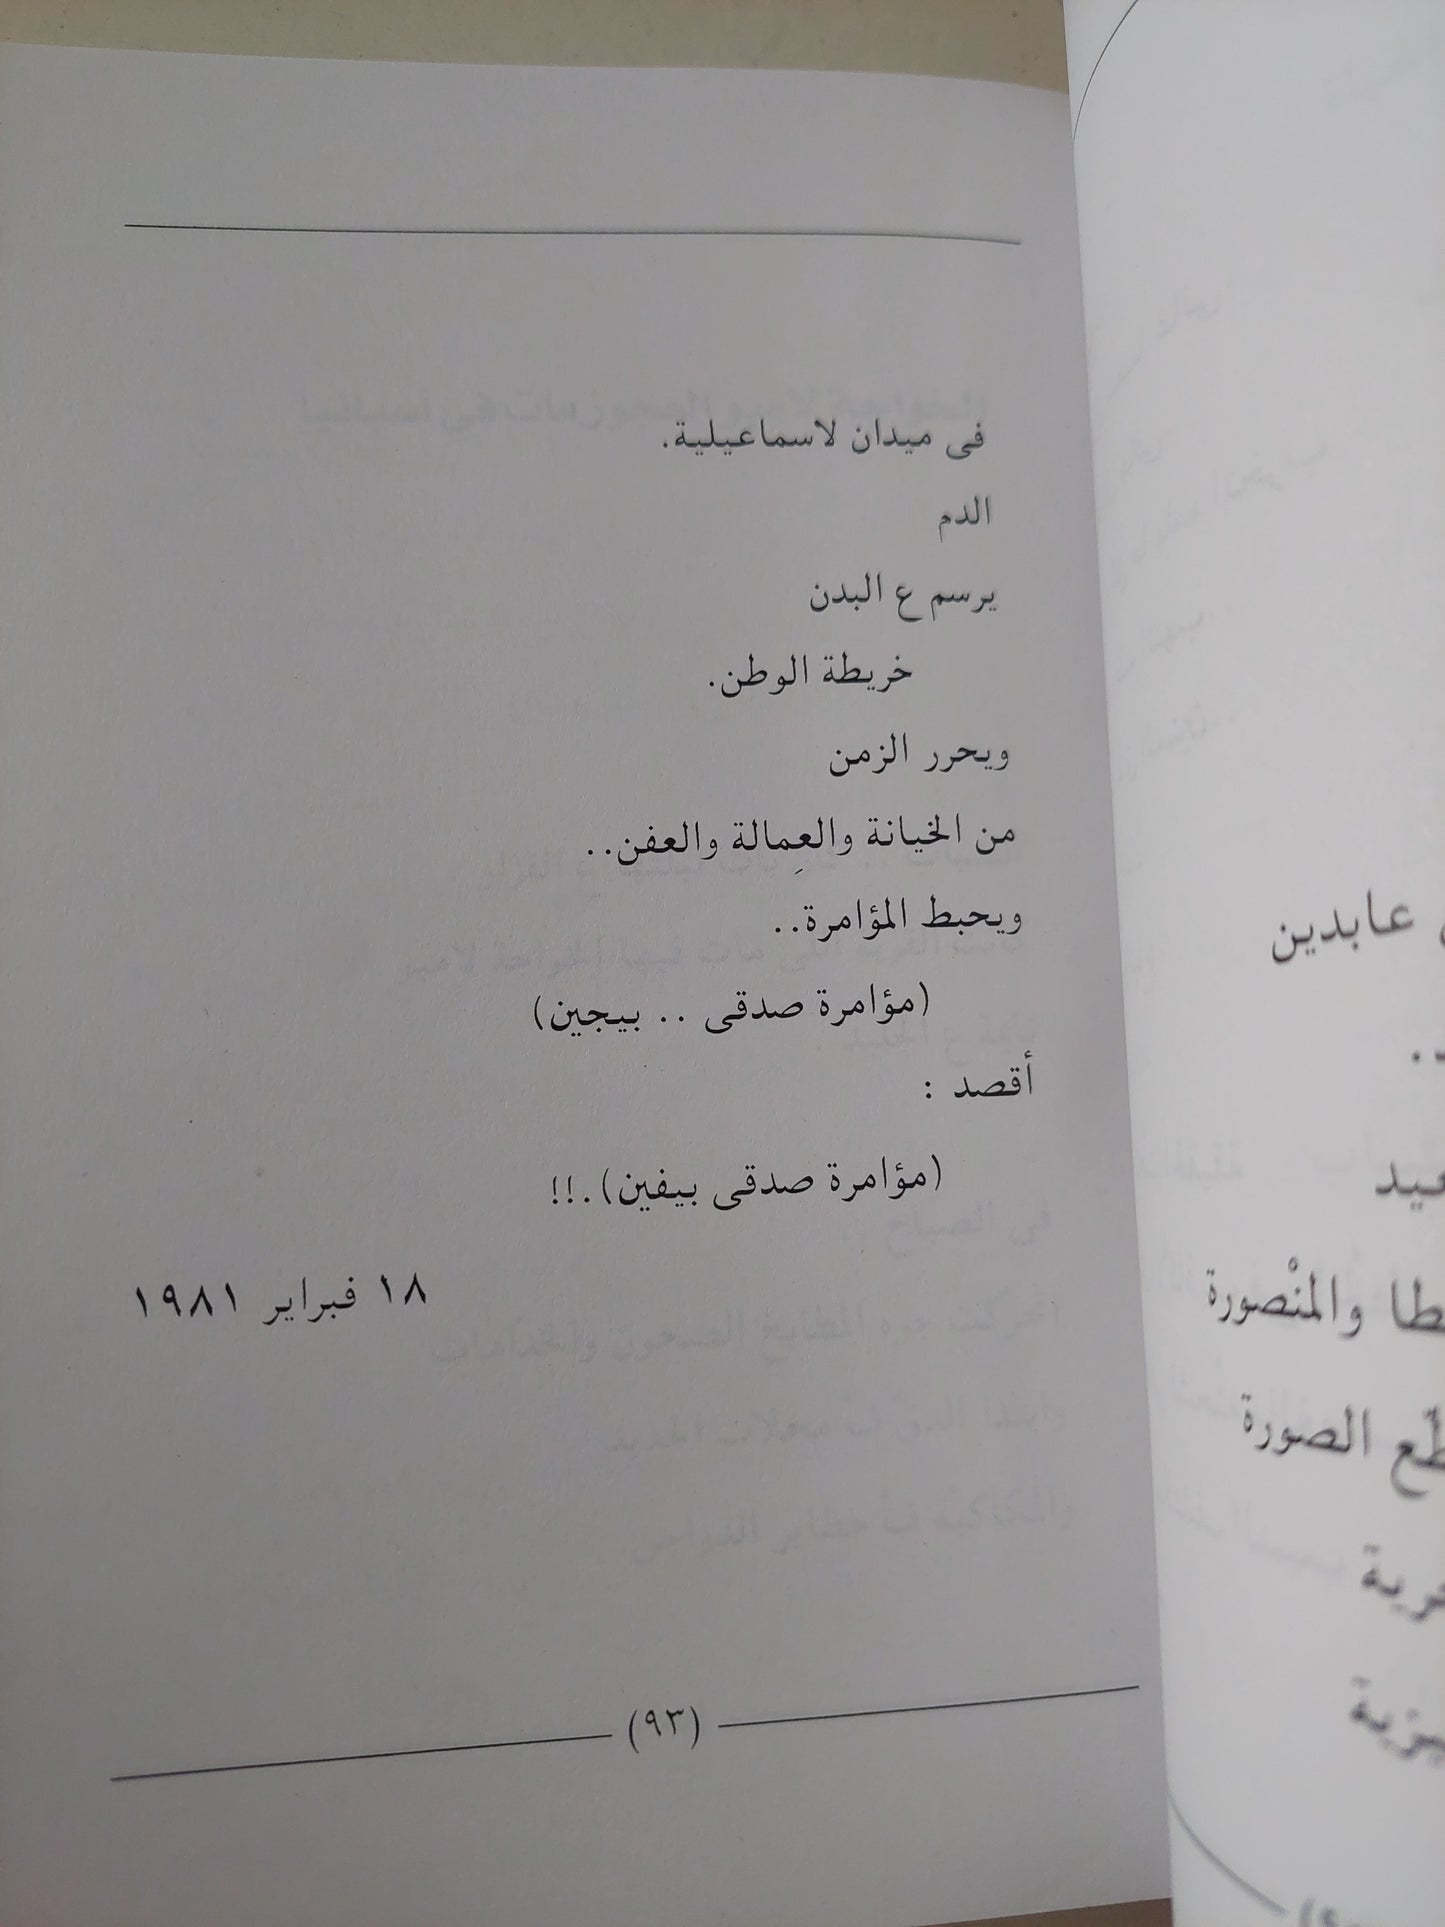 فى ميدان لاسماعيلية.
الدم
يرسم ع البدن
خريطة الوطن.
ويحرر الزمن
من الخيانة والعِمالة والعفن..
ويحبط المؤامرة..
(مؤامرة صدقى .. بيجين)
أقصد :
(مؤامرة صدقى بيفين).!!
١٨ فبراير ١٩٨١
(٩٣)
عابدين
والمنْصورة
الصورة